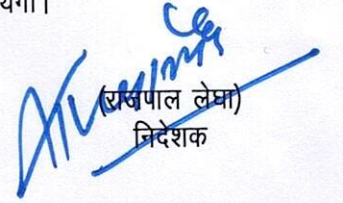 येगा।
(राजपाल लेघा)
निदेशक